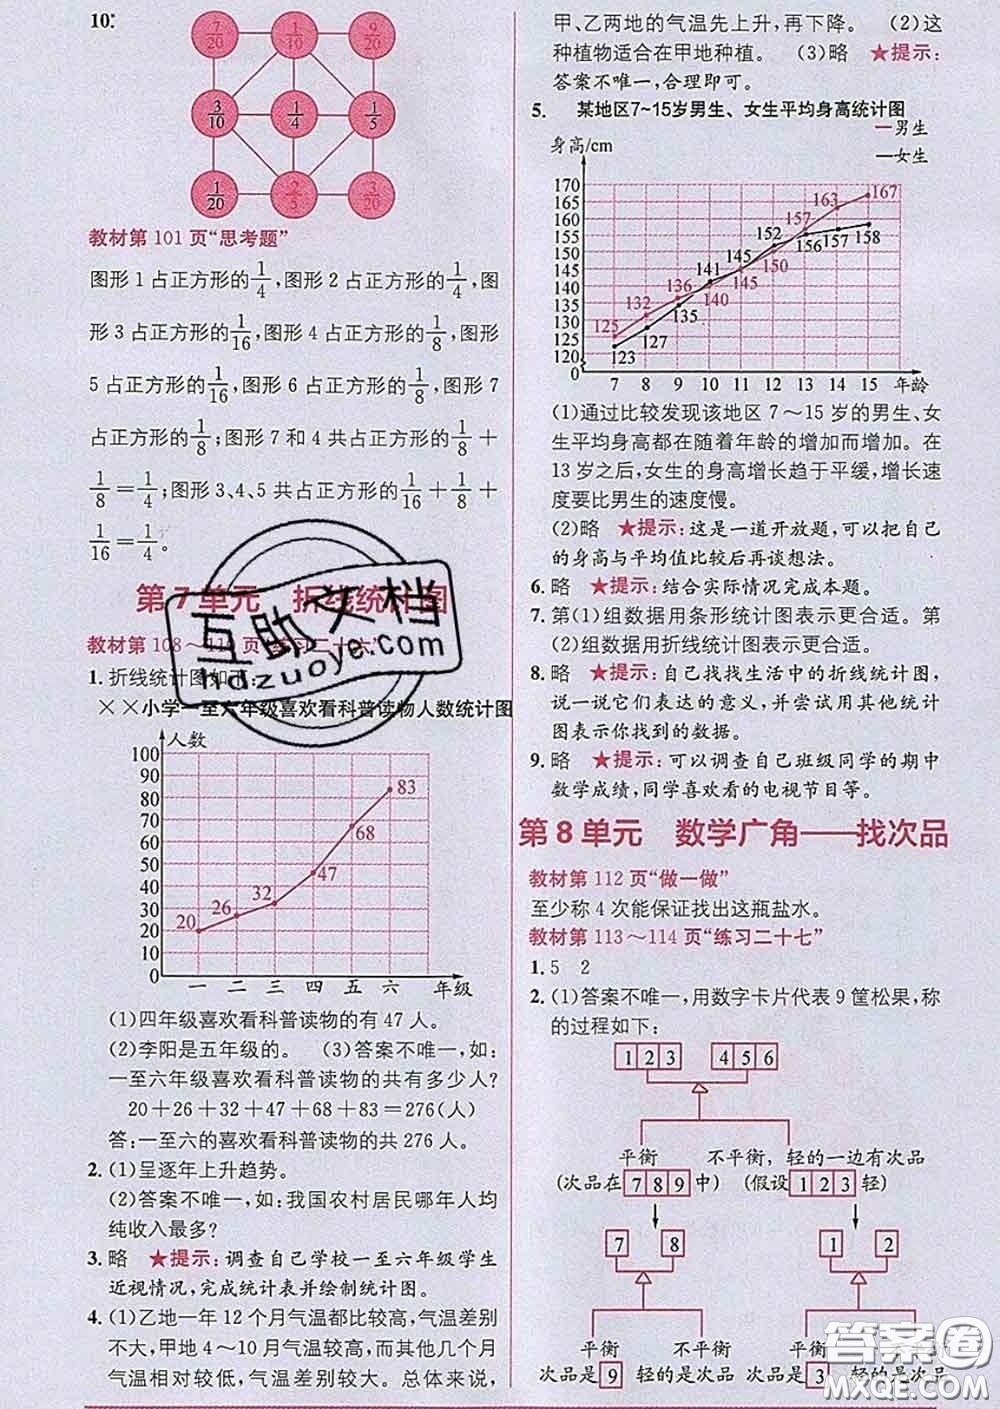 10.
7/20 1/10 9/20
3/10 1/4 1/5
1/20 2/5 3/20
教材第 101 页“思考题”
图形 1 占正方形的1/4,图形 2 占正方形的1/4,图
形 3 占正方形的1/16,图形 4 占正方形的1/8,图形
5 占正方形的1/16,图形 6 占正方形的1/8,图形 7
占正方形的1/8;图形 7 和 4 共占正方形的1/8＋
1/8＝1/4;图形 3、4、5 共占正方形的1/16＋1/8＋
1/16＝1/4。
第 7 单元 折线统计图
教材第 108～110 页“练习二十六”
1. 折线统计图如下:
××小学一至六年级喜欢看科普读物人数统计图
人数
100
90
80
70
60
50
40
30
20
10
0
20 26 32 47 68 83
一 二 三 四 五 六 年级
(1)四年级喜欢看科普读物的有 47 人。
(2)李阳是五年级的。 (3)答案不唯一,如:
一至六年级喜欢看科普读物的共有多少人?
20＋26＋32＋47＋68＋83＝276(人)
答:一至六的喜欢看科普读物的共 276 人。
2. (1)呈逐年上升趋势。
(2)答案不唯一,如:我国农村居民哪年人均
纯收入最多?
3. 略 ★提示:调查自己学校一至六年级学生
近视情况,完成统计表并绘制统计图。
4. (1)乙地一年 12 个月气温都比较高,气温差别
不大,甲地 4～10 月气温较高,而其他几个月
气温相对较低,气温差别较大。总体来说,
甲、乙两地的气温先上升,再下降。 (2)这
种植物适合在甲地种植。 (3)略 ★提示:
答案不唯一,合理即可。
5. 某地区7~15岁男生、女生平均身高统计图
身高/cm
男生
女生
170
165
160
155
150
145
140
135
130
125
120
0
125 132 136 140 145 150 157 163 167
123 127 135 141 145 152 156 157 158
7 8 9 10 11 12 13 14 15 年龄
(1)通过比较发现该地区 7～15 岁的男生、女
生平均身高都在随着年龄的增加而增加。在
13 岁之后,女生的身高增长趋于平缓,增长速
度要比男生的速度慢。
(2)略 ★提示:这是一道开放题,可以把自己
的身高与平均值比较后再谈想法。
6. 略 ★提示:结合实际情况完成本题。
7. 第(1)组数据用条形统计图表示更合适。第
(2)组数据用折线统计图表示更合适。
8. 略 ★提示:自己找找生活中的折线统计图,
说一说它们表达的意义,并尝试用其他统计
图表示你找到的数据。
9. 略 ★提示:可以调查自己班级同学的期中
数学成绩,同学喜欢看的电视节目等。
第 8 单元 数学广角——找次品
教材第 112 页“做一做”
至少称 4 次能保证找出这瓶盐水。
教材第 113～114 页“练习二十七”
1. 5 2
2. (1)答案不唯一,用数字卡片代表 9 筐松果,称
的过程如下:
1 2 3 4 5 6
平衡 不平衡,轻的一边有次品
(次品在 7 8 9 中) (假设 1 2 3 轻)
7 8 1 2
平衡 不平衡 平衡 不平衡
次品是 9 轻的是次品 次品是 3 轻的是次品
互助文档
hdzuoye.com
答案圈
MXQE.COM